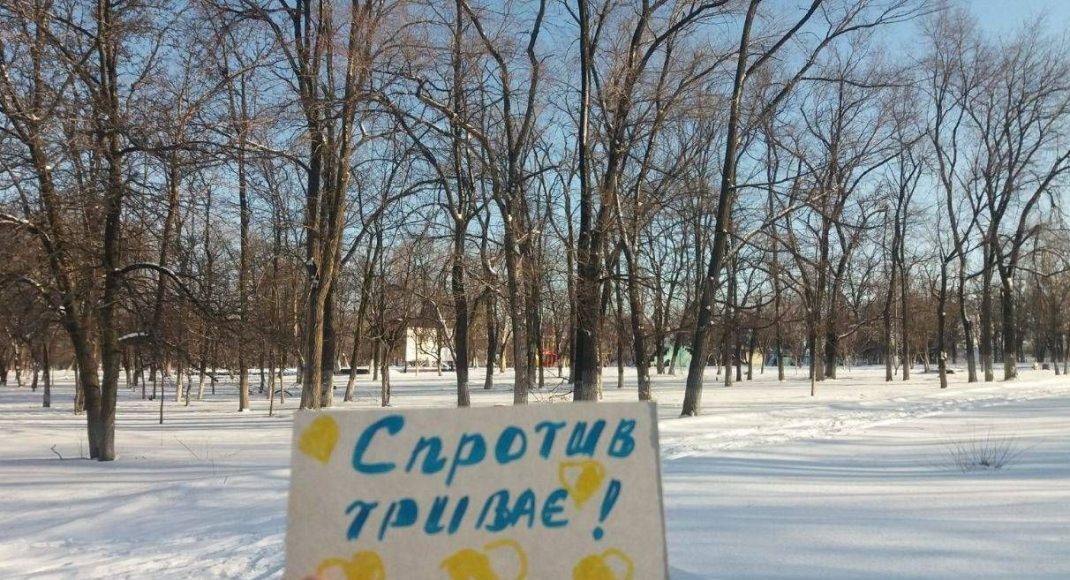 Спротив
триває!